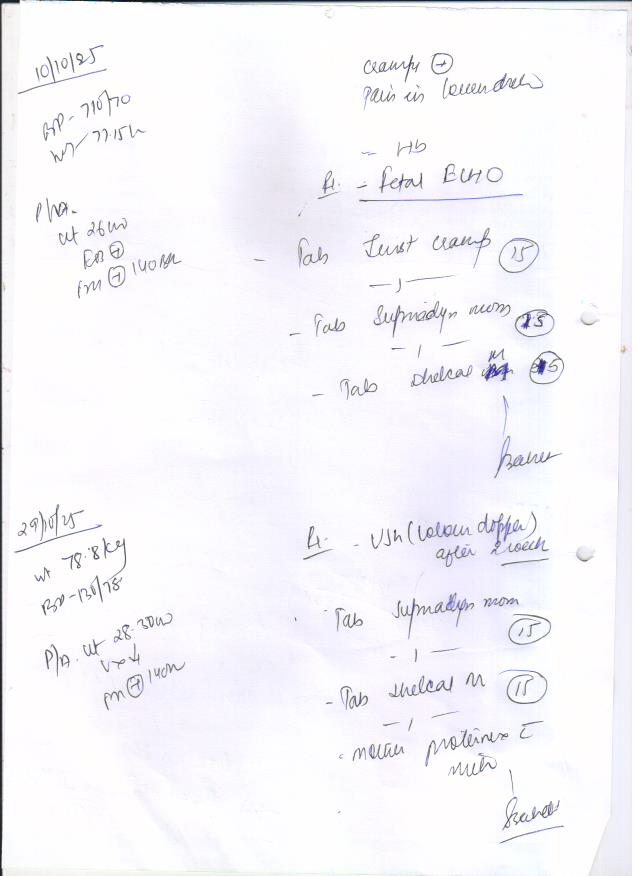 10/10/25
BP - 110/70
Wt - 77.15k
P/A.
ut 26w
FHR + 140
cramps +
Pain in
- Hb
R. - Fetal ECHO
- Tab cramp 15
- 1 -
- Tab Supradyn mom 15
- 1 -
- Tab Shelcal M 15
29/10/25
wt 78.8 kg
BP - 130/78
P/A. ut 28-30w
Vx
+ 140
R. - USG (colour doppler)
after 2 week
Tab Supradyn mom
15
- 1 -
- Tab Shelcal M 15
- 1 -
mother proteinex c̄
milk